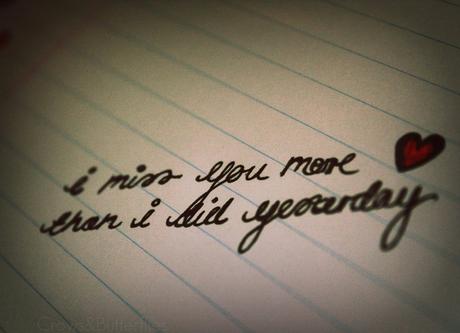 i miss you more
than i did yesarday